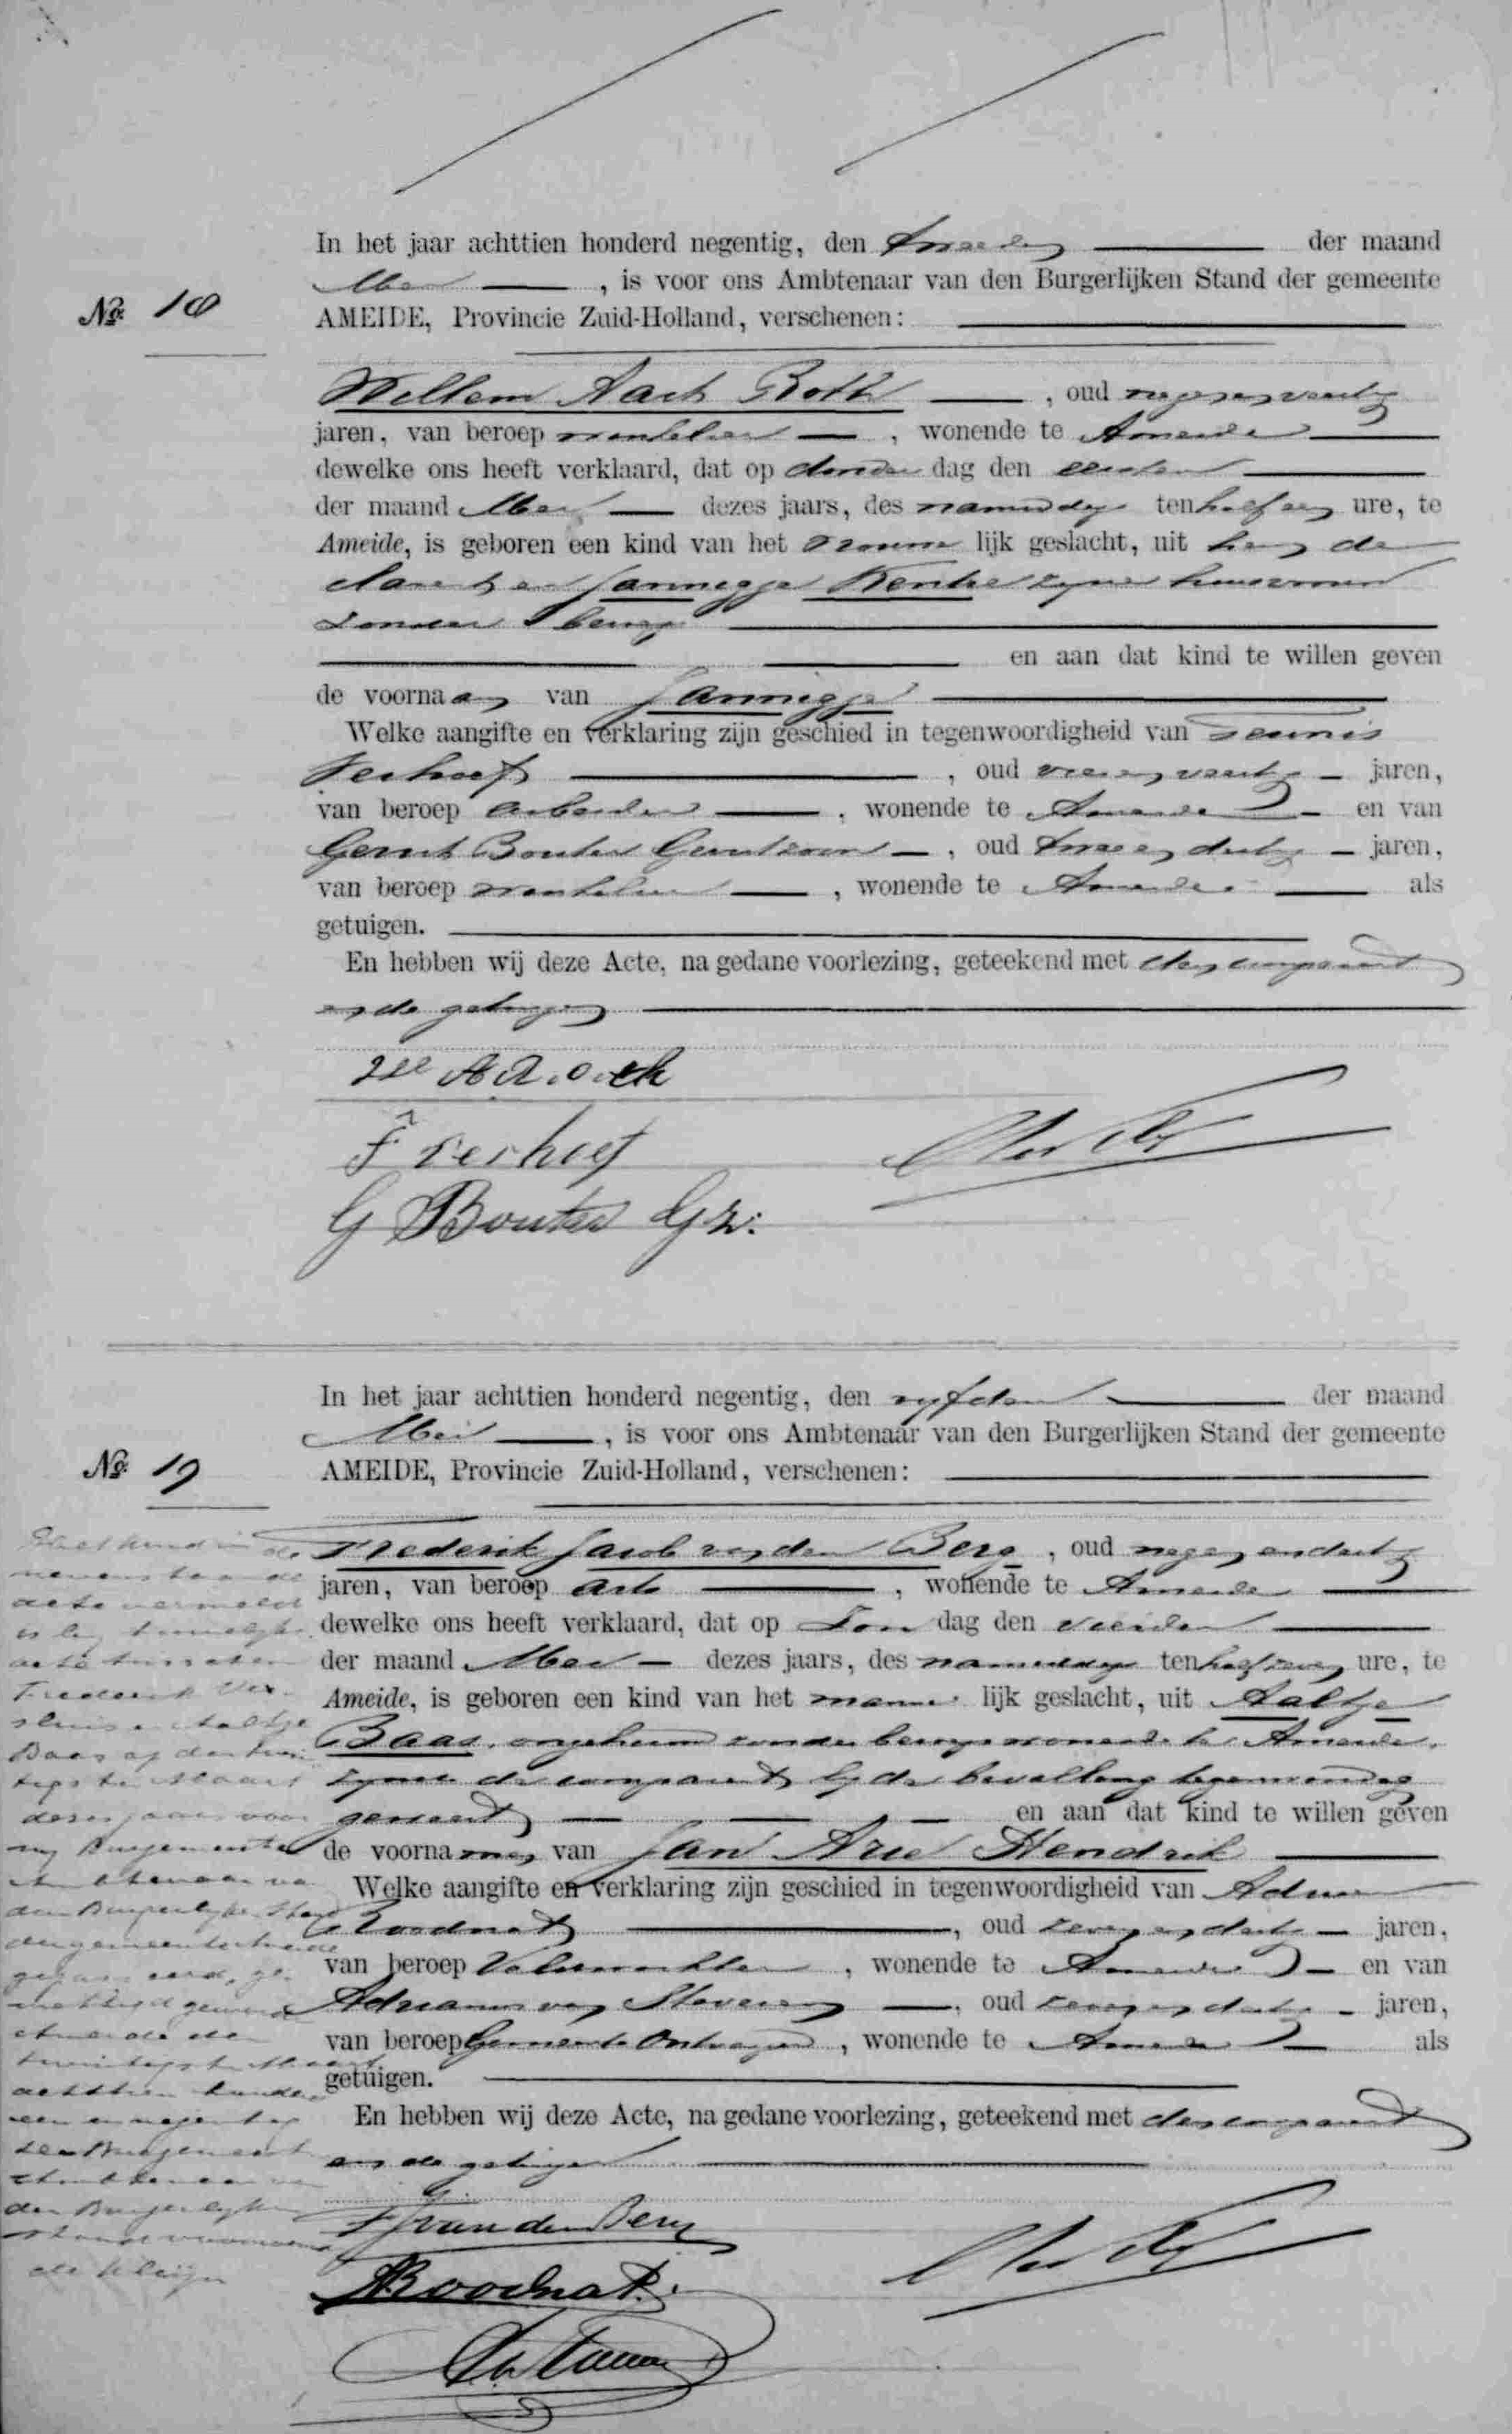 In het jaar achttien honderd negentig, den tweeden der maand
Mei, is voor ons Ambtenaar van den Burgerlijken Stand der gemeente
No. 18
AMEIDE, Provincie Zuid-Holland, verschenen:
Willem Aart Roth, oud negenentwintig
jaren, van beroep winkelier, wonende te Ameide
dewelke ons heeft verklaard, dat op donder dag den eersten
der maand Mei dezes jaars, des namiddags ten half een ure, te
Ameide, is geboren een kind van het vrouwe lijk geslacht, uit hem de
clarant en Jannigje Kentie zyne huisvrouw
zonder beroep
en aan dat kind te willen geven
de voornaam van Jannigje
Welke aangifte en verklaring zijn geschied in tegenwoordigheid van Teunis
Verhoef, oud jaren,
van beroep arbeider, wonende te Ameide en van
Gerrit Bouter Gerritzoon, oud twee en dertig jaren,
van beroep winkelier, wonende te Ameide als
getuigen.
En hebben wij deze Acte, na gedane voorlezing, geteekend met den comparant
en de getuigen
T Verhoef
G Bouter Gz:
In het jaar achttien honderd negentig, den vyfden der maand
Mei, is voor ons Ambtenaar van den Burgerlijken Stand der gemeente
No. 19
AMEIDE, Provincie Zuid-Holland, verschenen:
Frederik Jacob van den Berg, oud negen en dertig
jaren, van beroep arts, wonende te Ameide
dewelke ons heeft verklaard, dat op Zon dag den vierden
der maand Mei dezes jaars, des namiddags ten half zeven ure, te
Ameide, is geboren een kind van het manne lijk geslacht, uit Aaltje
Baas, ongehuwd zonder beroep wonende te Ameide,
zynde de comparant by de bevalling tegenwoordig
geweest en aan dat kind te willen geven
de voornamen van Jan Arie Hendrik
Welke aangifte en verklaring zijn geschied in tegenwoordigheid van Adriaan
Roodnat, oud zeven en dertig jaren,
van beroep Veldwachter, wonende te Ameide en van
Adrianus van Staveren, oud zeven en dertig jaren,
van beroep Gemeente Ontvanger, wonende te Ameide als
getuigen.
En hebben wij deze Acte, na gedane voorlezing, geteekend met den comparant
en de getuigen
FJ van den Berg
A Roodnat.
Het kind in de
nevenstaande
acte vermeld
is by huwelyks
acte tusschen
Frederik Ver
sluis en Aaltje
Baas op den twin
tigsten Maart
dezes jaars voor
my Burgemeester
Ambtenaar van
den Burgerlyken Stand
der gemeente Ameide
gepasseerd, ge
wettigd geworden
Ameide den
twintigsten Maart
achttien honderd
een en negentig
De Burgemeester
Ambtenaar van
den Burgerlyken
Stand voornoemd